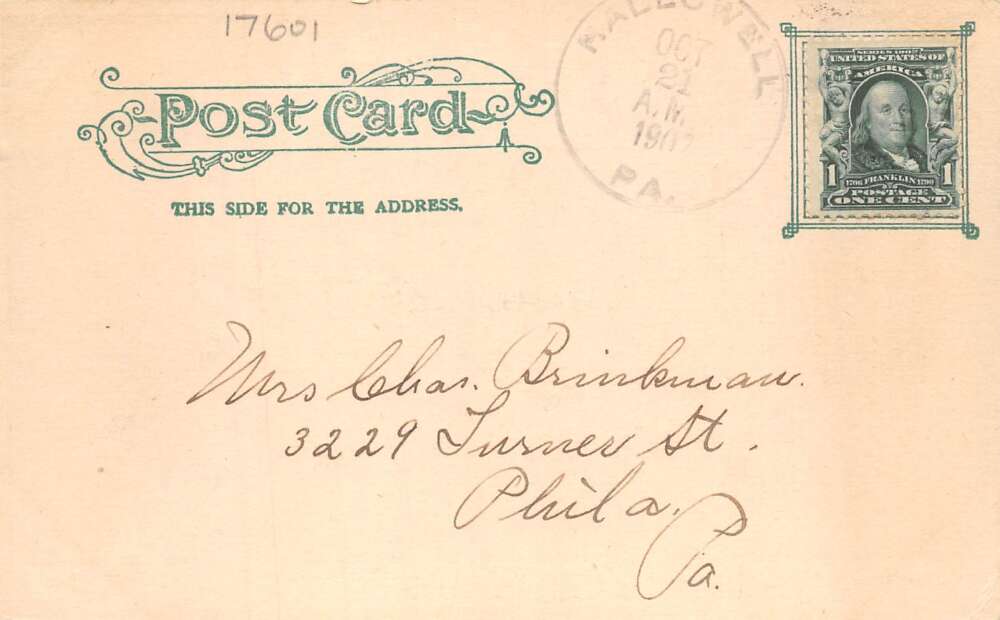 17601
POST CARD
THIS SIDE FOR THE ADDRESS.
HALLOWELL
OCT
21
A.M.
PA.
SERIES 1902
UNITED STATES OF
AMERICA
1 1706 FRANKLIN 1790 1
POSTAGE
ONE CENT
Mrs Chas. Brinkman.
3229 Turner St.
Phila.
Pa.